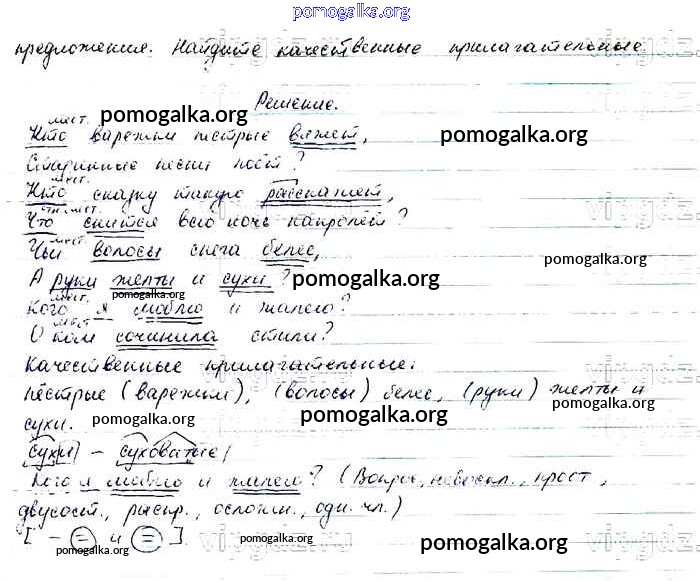 pomogalka.org
предложения. Найдите качественные прилагательные
Решение.
мест.
Кто варежки пестрые вяжет,
Старинные песни поёт?
мест.
Кто сказку такую расскажет,
мест.
Что снится всю ночь напролёт?
мест.
Чьи волосы снега белее,
А руки желты и сухи?
мест.
Кого я люблю и жалею?
мест.
О ком сочинила стихи?
Качественные прилагательные:
пёстрые (варежки), (волосы) белее, (руки) желты и
сухи.
сухи – суховатые
Кого я люблю и жалею? (Вопрос., невоскл., прост.,
двусост., распр., осложн., одн. чл.)
[ – = и = ].
pomogalka.org
pomogalka.org
pomogalka.org
pomogalka.org
pomogalka.org
pomogalka.org
pomogalka.org
pomogalka.org
pomogalka.org
pomogalka.org
pomogalka.org